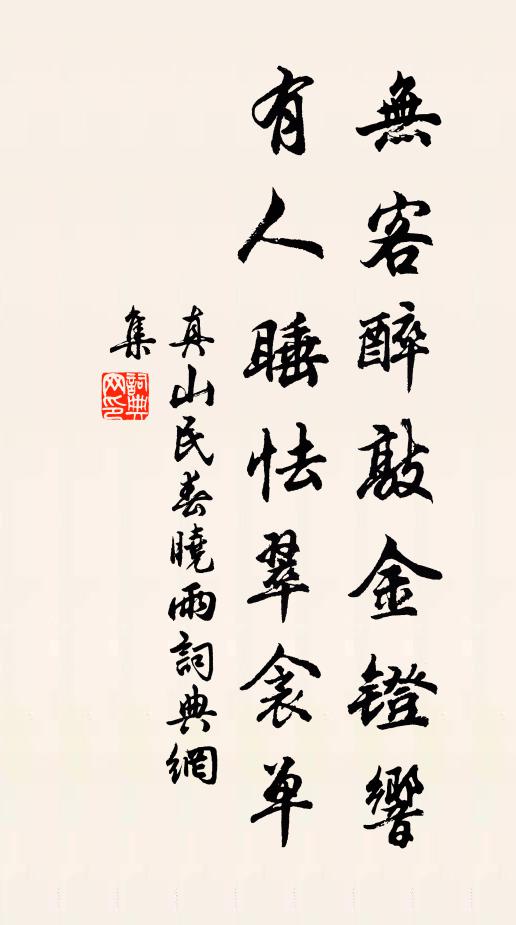 無客醉敲金鐙響
有人睡怯翠衾單
真山民春曉雨詞典網
集
詞典
网印